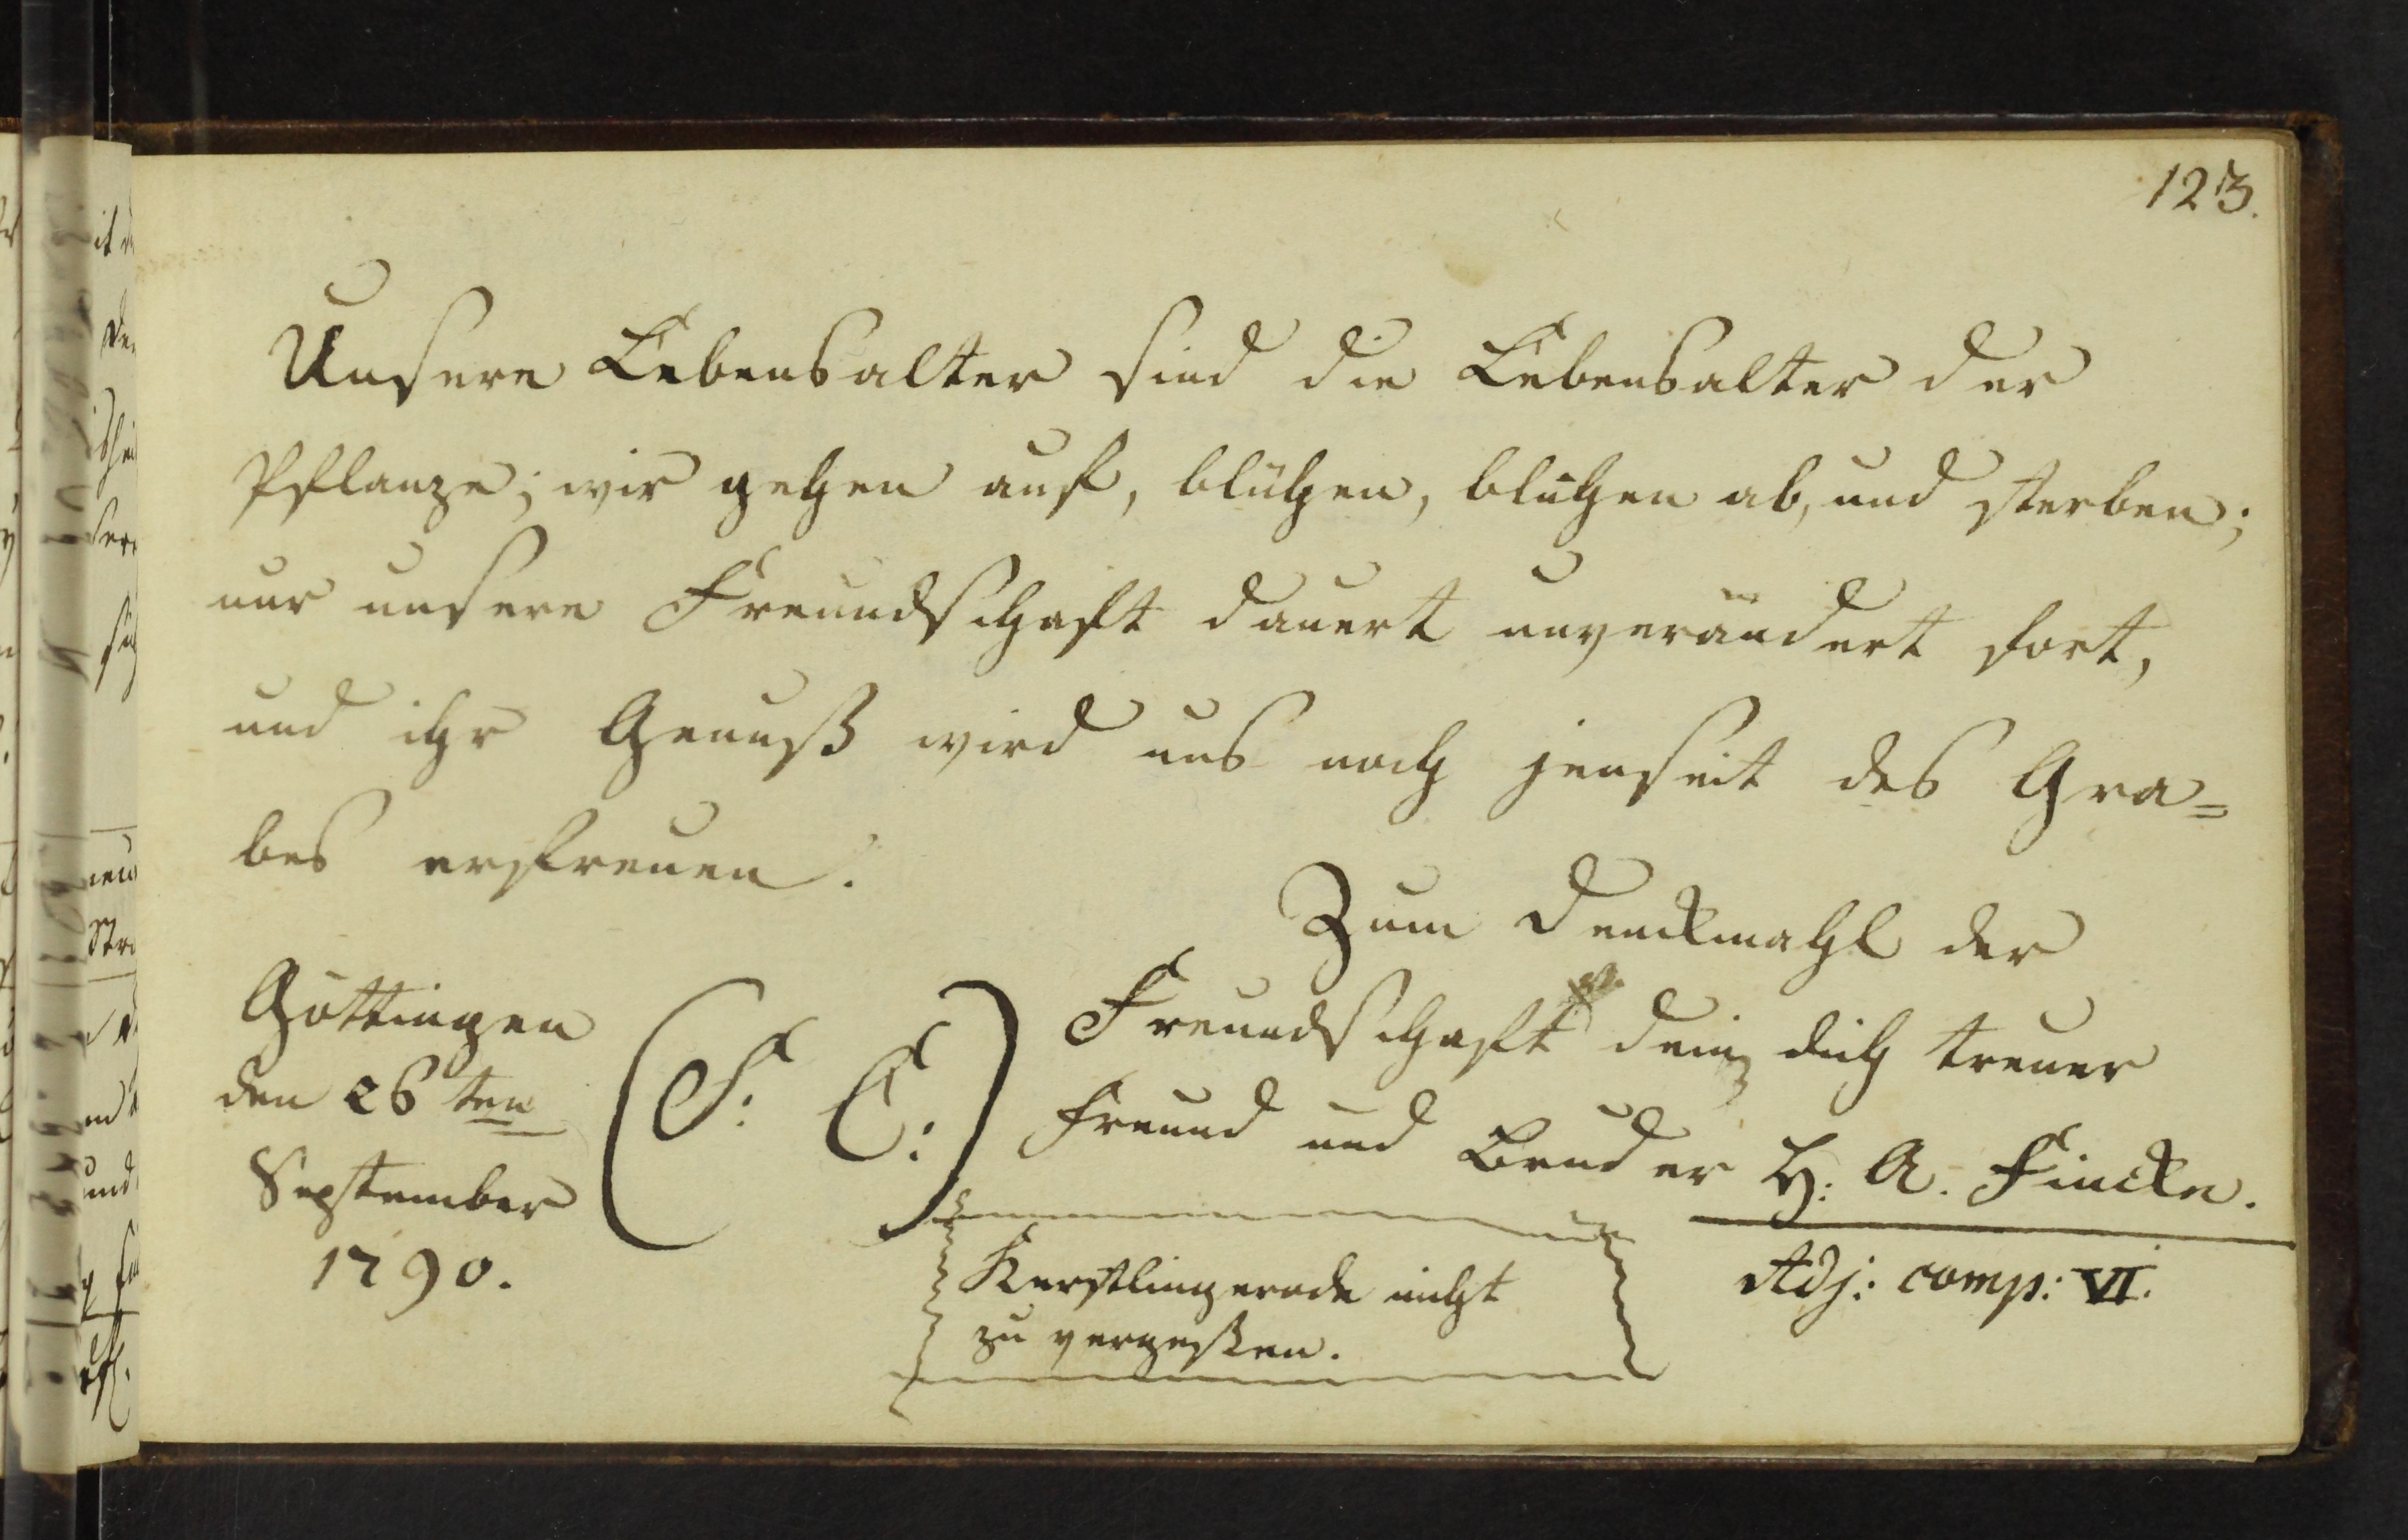 123.
Unsere Lebensalter sind die Lebensalter der
Pflanze; wir gehen auf, blühen, blühen ab, und sterben;
nur unsere Freundschaft dauert unverändert fort,
und ihr Genuß wird uns noch jenseit des Gra=
bes erfreuen.
Zum Denckmahl der
Freundschaft dein dich treuer
Freund und Bruder H: A. Fincke.
Adj: comp: VI.
Göttingen
den 26 ten
September
1790.
(F: C:)
Kerstlingerode nicht
zu vergeßen.